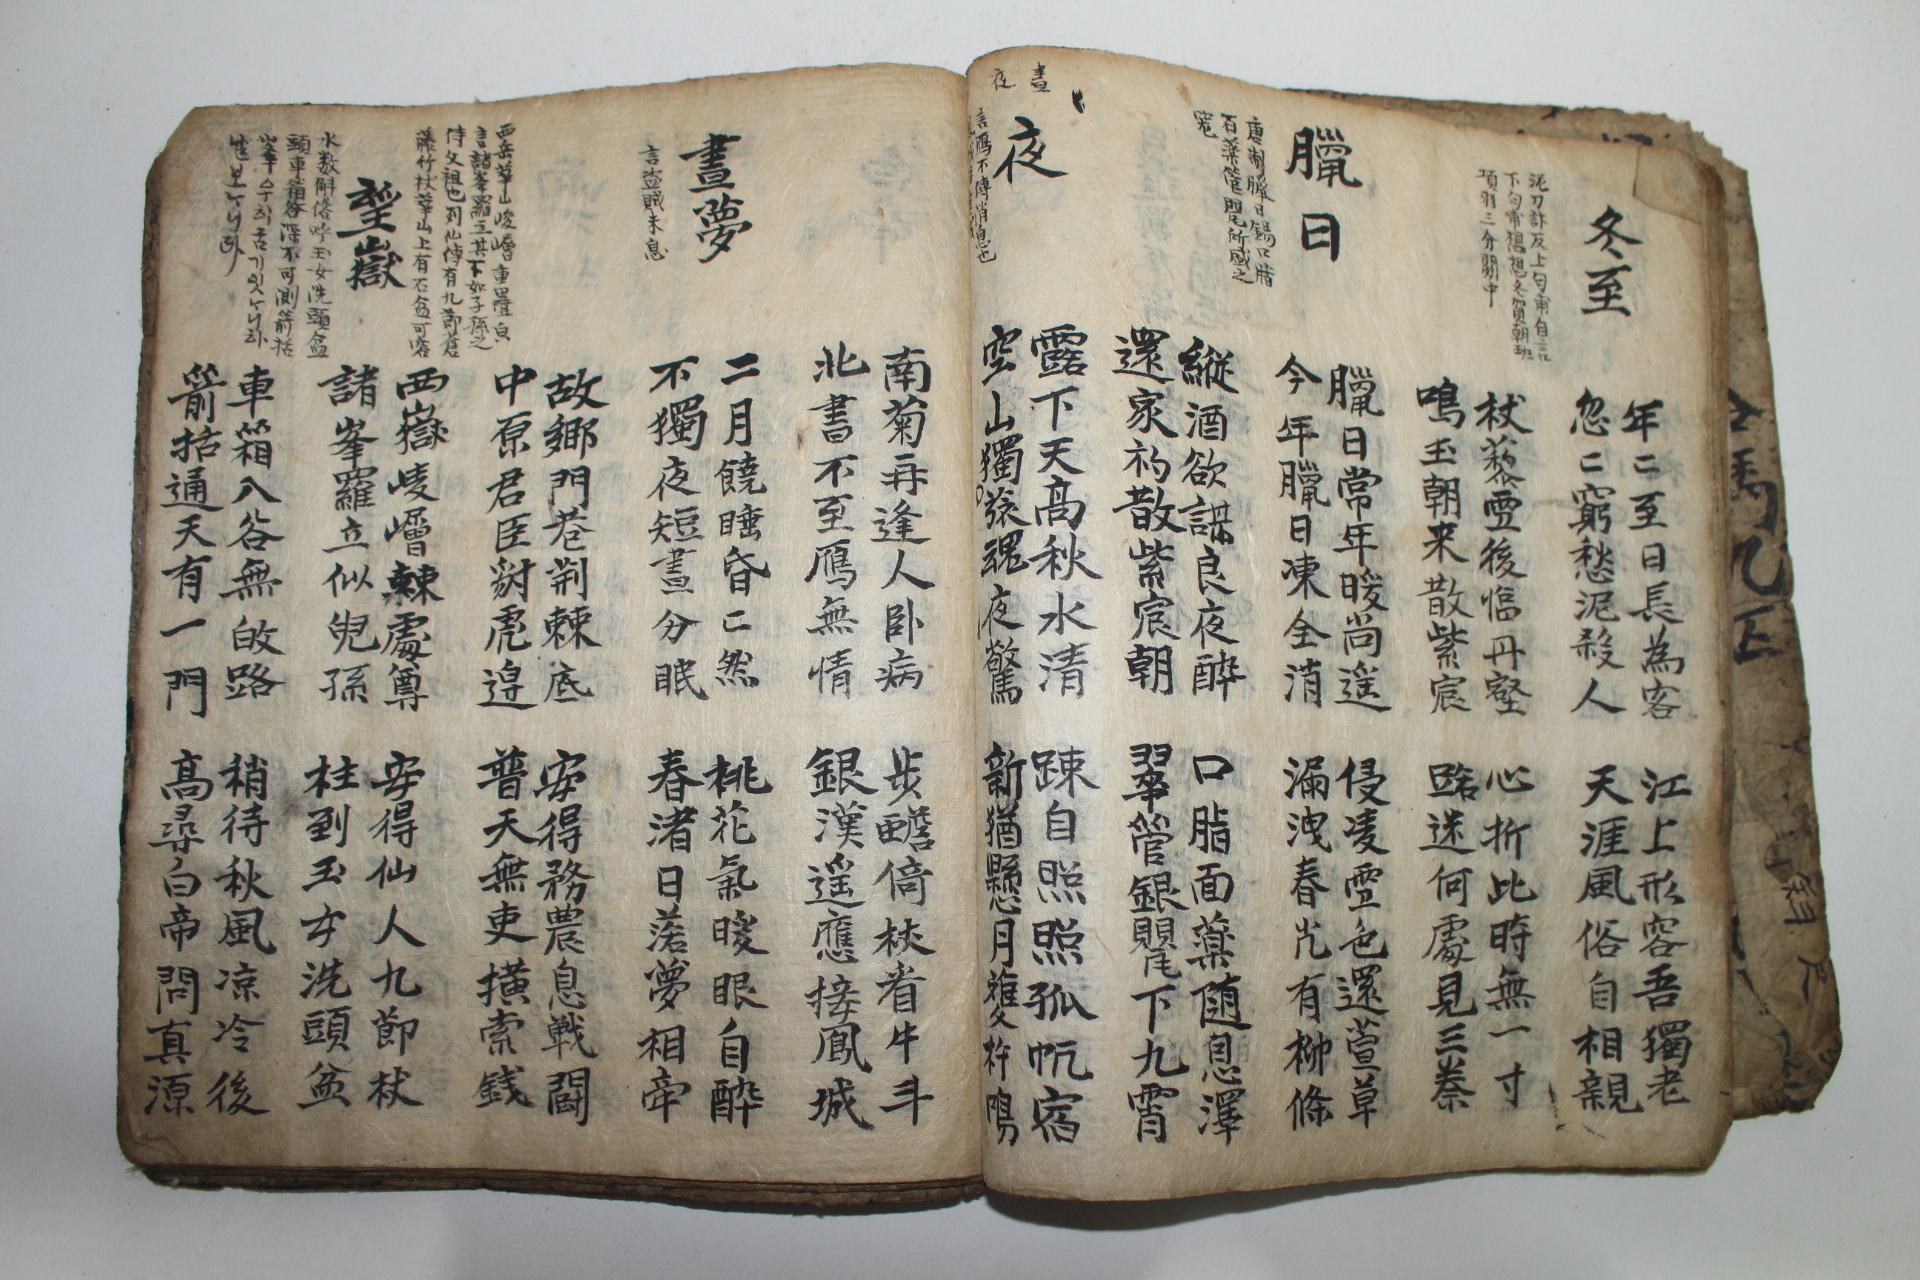 冬至
泥刀詐反上句甫自言
下句甫想想冬賀朝班
項羽三分關中
年二至日長為客
忽二窮愁泥殺人
江上形容吾獨老
天涯風俗自相親
杖藜雪後臨丹壑
鳴玉朝来散紫宸
心折此時無一寸
路迷何處見三秦
臘日
唐制臘日錫口脂
臘日常年暖尚遥
今年臘日凍全消
侵凌雪色還萱草
漏洩春光有柳條
縱酒欲謀良夜醉
還家初散紫宸朝
口脂面藥随恩澤
翠管銀罌下九霄
晝
夜
夜
言鴈不傳消息也
露下天高秋水清
空山獨旅魂夜驚
踈自照照孤帆宿
新猶懸月雙杵鳴
南菊再逢人卧病
北書不至鴈無情
步蟾倚杖看牛斗
銀漢遥應接鳳城
晝夢
言盜賊未息
二月饒睡昏二然
不獨夜短晝分眠
桃花氣暖眼自醉
春渚日落夢相牽
故鄉門巷荆棘底
中原君臣豺虎邊
安得務農息戰鬪
普天無吏橫索錢
西岳華山崚嶒重疊白
言諸峯羅立其下如子孫之
侍父祖也列仙傳有九節蒼
藤竹杖華山上有石盆可容
望嶽
水数斛俗呼玉女洗頭盆
頭車箱谷深不可測箭括
西嶽崚嶒竦處尊
諸峯羅立似兒孫
安得仙人九節杖
柱到玉女洗頭盆
車箱入谷無㱕路
箭括通天有一門
稍待秋風凉冷後
高尋白帝問真源